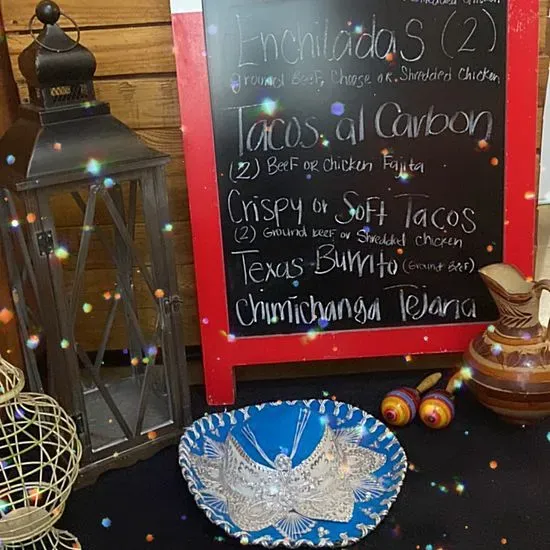 Shredded Chicken
Enchiladas (2)
Ground Beef, Cheese or Shredded Chicken
Tacos al Carbon
(2) Beef or Chicken Fajita
Crispy or Soft Tacos
(2) Ground Beef or Shredded Chicken
Texas Burrito (Ground Beef)
Chimichanga Tejana